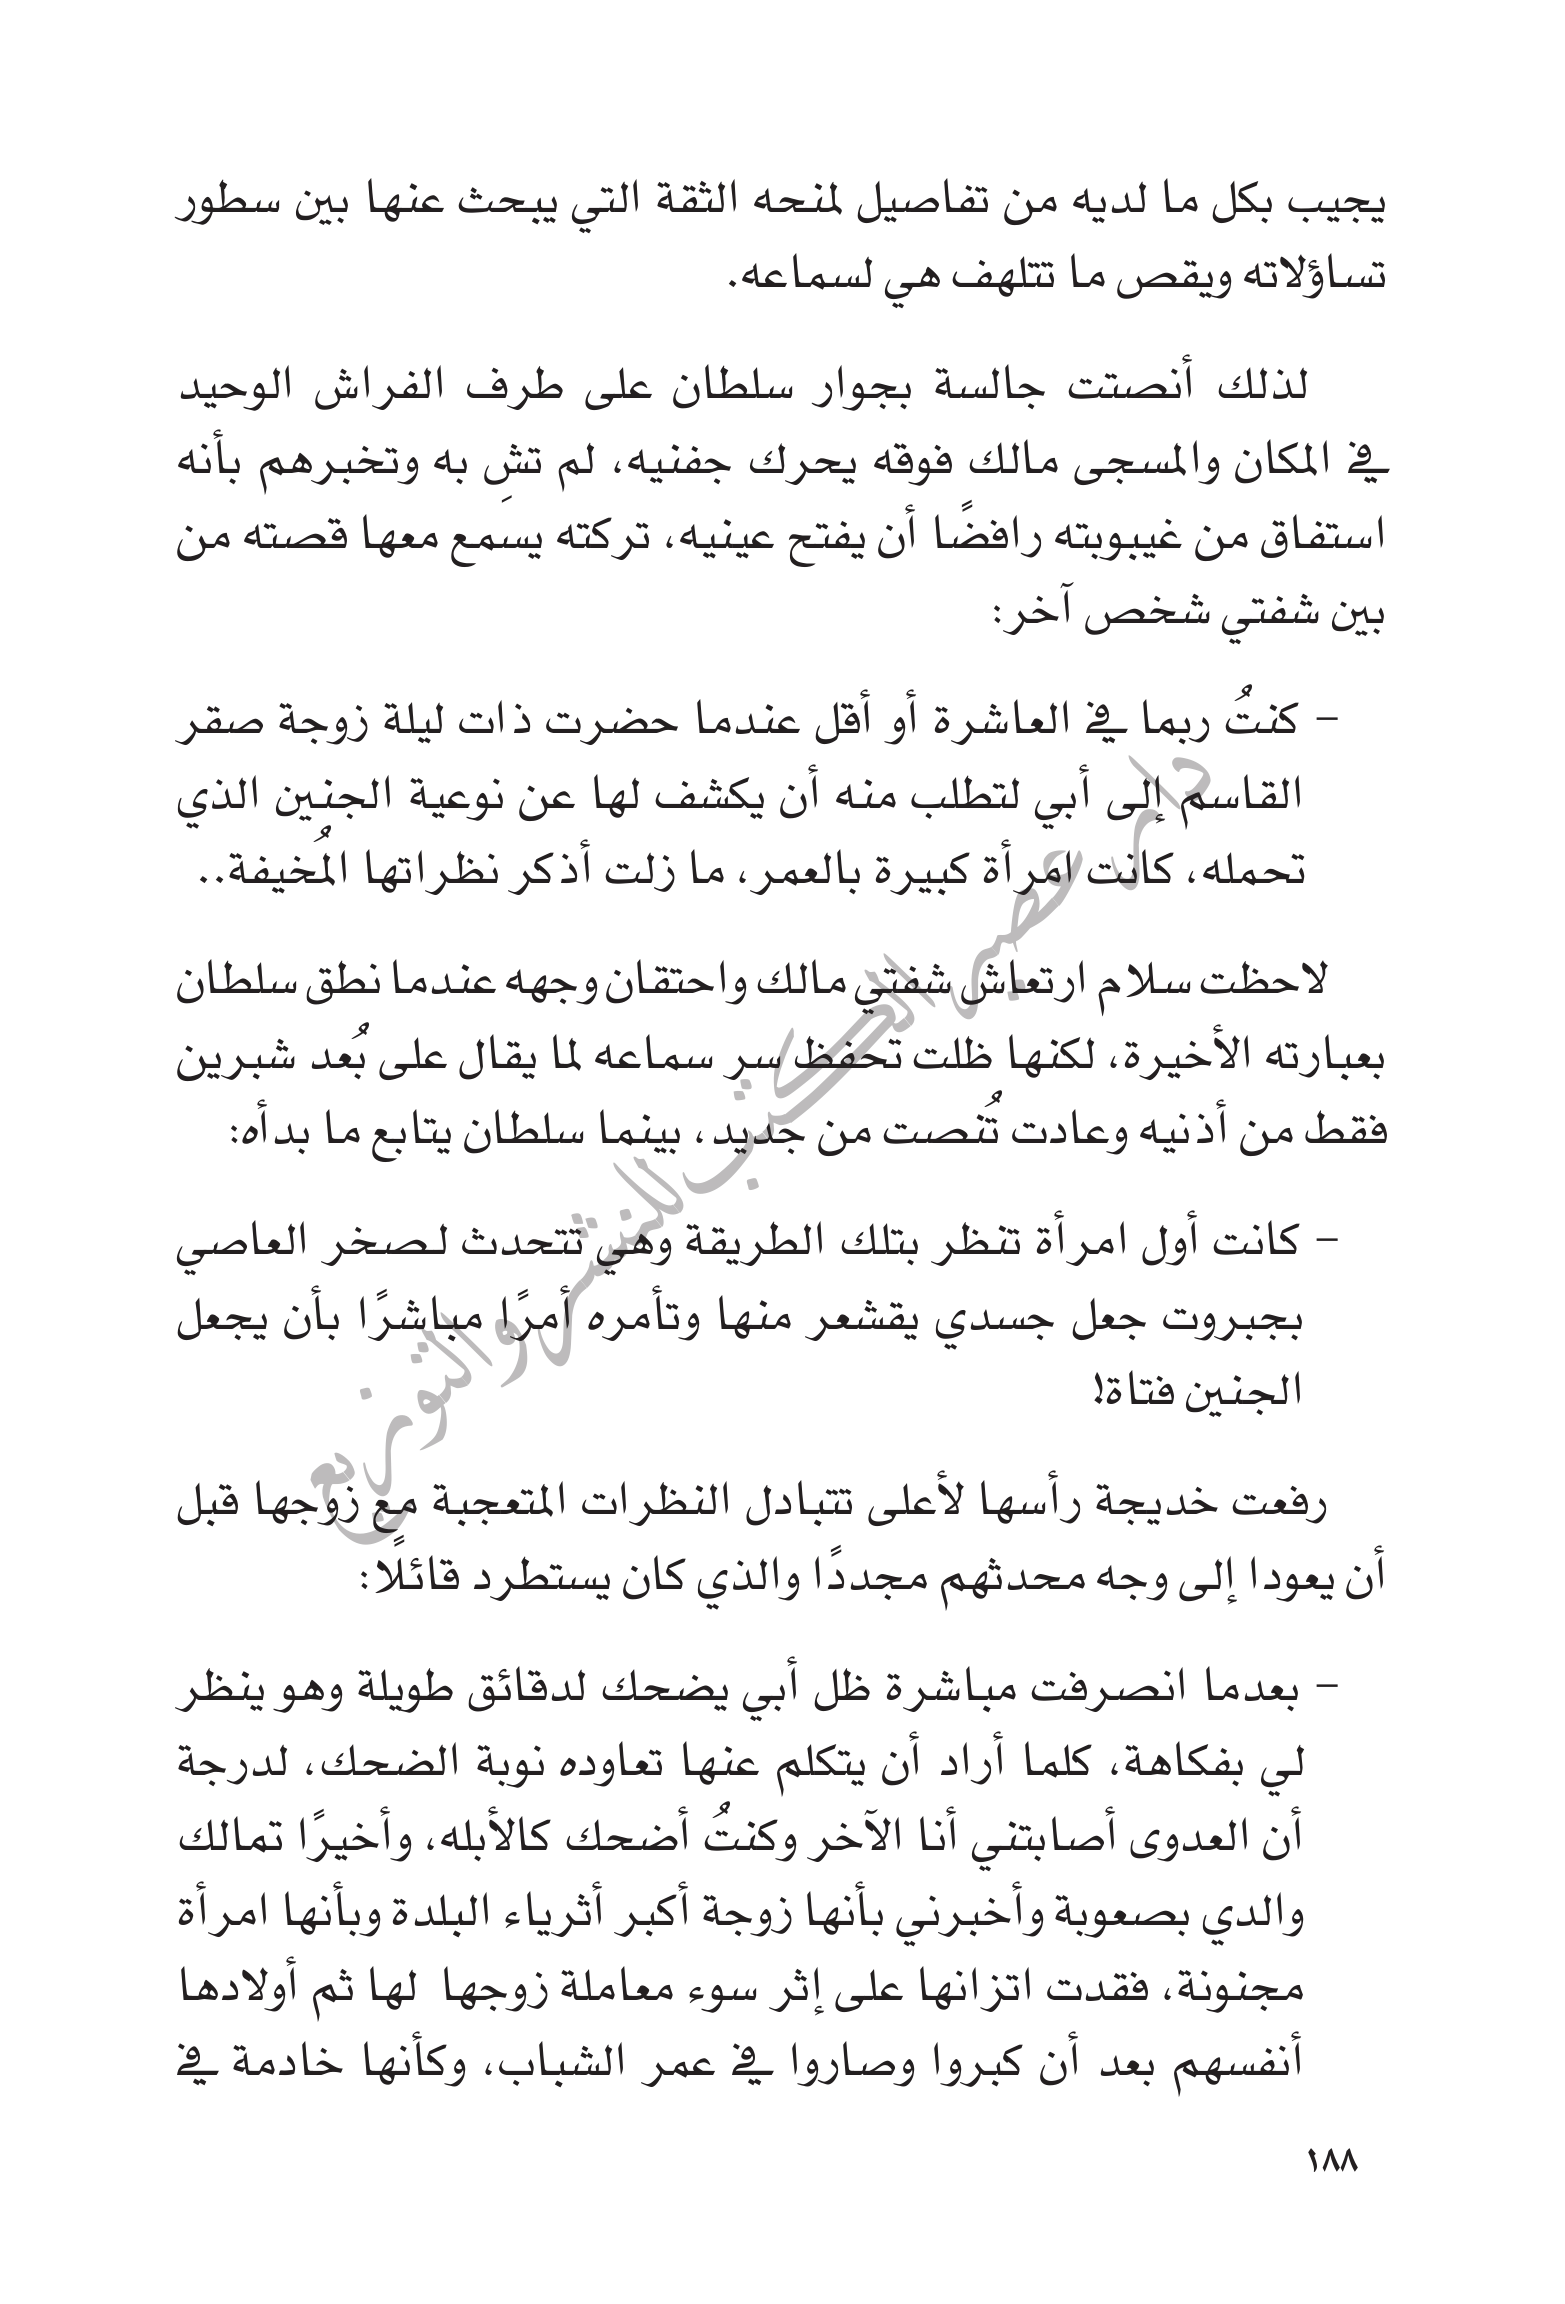 يجيب بكل ما لديه من تفاصيل لمنحه الثقة التي يبحث عنها بين سطور
تساؤلاته ويقص ما تتلهف هي لسماعه.
لذلك أنصتت جالسة بجوار سلطان على طرف الفراش الوحيد
في المكان والمسجى مالك فوقه يحرك جفنيه، لم تشِ به وتخبرهم بأنه
استفاق من غيبوبته رافضًا أن يفتح عينيه، تركته يسمع معها قصته من
بين شفتي شخص آخر:
– كنتُ ربما في العاشرة أو أقل عندما حضرت ذات ليلة زوجة صقر
القاسم إلى أبي لتطلب منه أن يكشف لها عن نوعية الجنين الذي
تحمله، كانت امرأة كبيرة بالعمر، ما زلت أذكر نظراتها المُخيفة..
لاحظت سلام ارتعاش شفتي مالك واحتقان وجهه عندما نطق سلطان
بعبارته الأخيرة، لكنها ظلت تحفظ سر سماعه لما يقال على بُعد شبرين
فقط من أذنيه وعادت تُنصت من جديد، بينما سلطان يتابع ما بدأه:
– كانت أول امرأة تنظر بتلك الطريقة وهي تتحدث لـصخر العاصي
بجبروت جعل جسدي يقشعر منها وتأمره أمرًا مباشرًا بأن يجعل
الجنين فتاة!
رفعت خديجة رأسها لأعلى تتبادل النظرات المتعجبة مع زوجها قبل
أن يعودا إلى وجه محدثهم مجددًا والذي كان يستطرد قائلًا:
– بعدما انصرفت مباشرة ظل أبي يضحك لدقائق طويلة وهو ينظر
لي بفكاهة، كلما أراد أن يتكلم عنها تعاوده نوبة الضحك، لدرجة
أن العدوى أصابتني أنا الآخر وكنتُ أضحك كالأبله، وأخيرًا تمالك
والدي بصعوبة وأخبرني بأنها زوجة أكبر أثرياء البلدة وبأنها امرأة
مجنونة، فقدت اتزانها على إثر سوء معاملة زوجها لها ثم أولادها
أنفسهم بعد أن كبروا وصاروا في عمر الشباب، وكأنها خادمة في
١٨٨
دار عصير الكتب للنشر والتوزيع